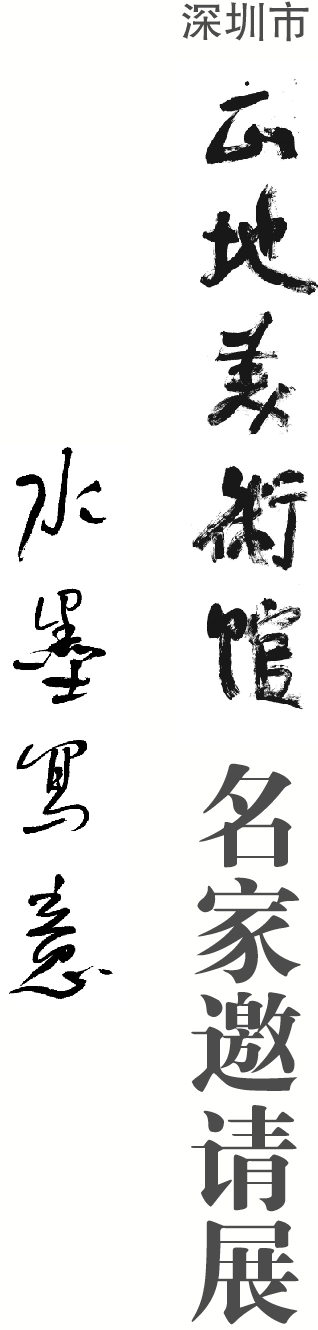 深圳市
云地美術馆
名家邀请展
水墨寫意